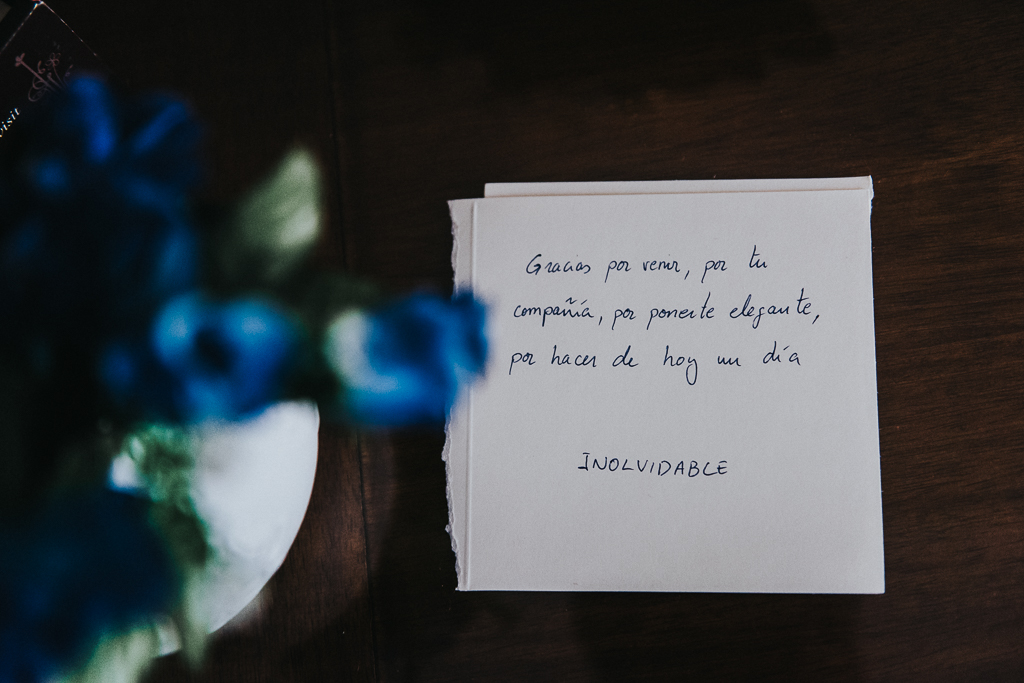 visit
Gracias por venir, por tu
compañía, por ponerte elegante,
por hacer de hoy un día
INOLVIDABLE